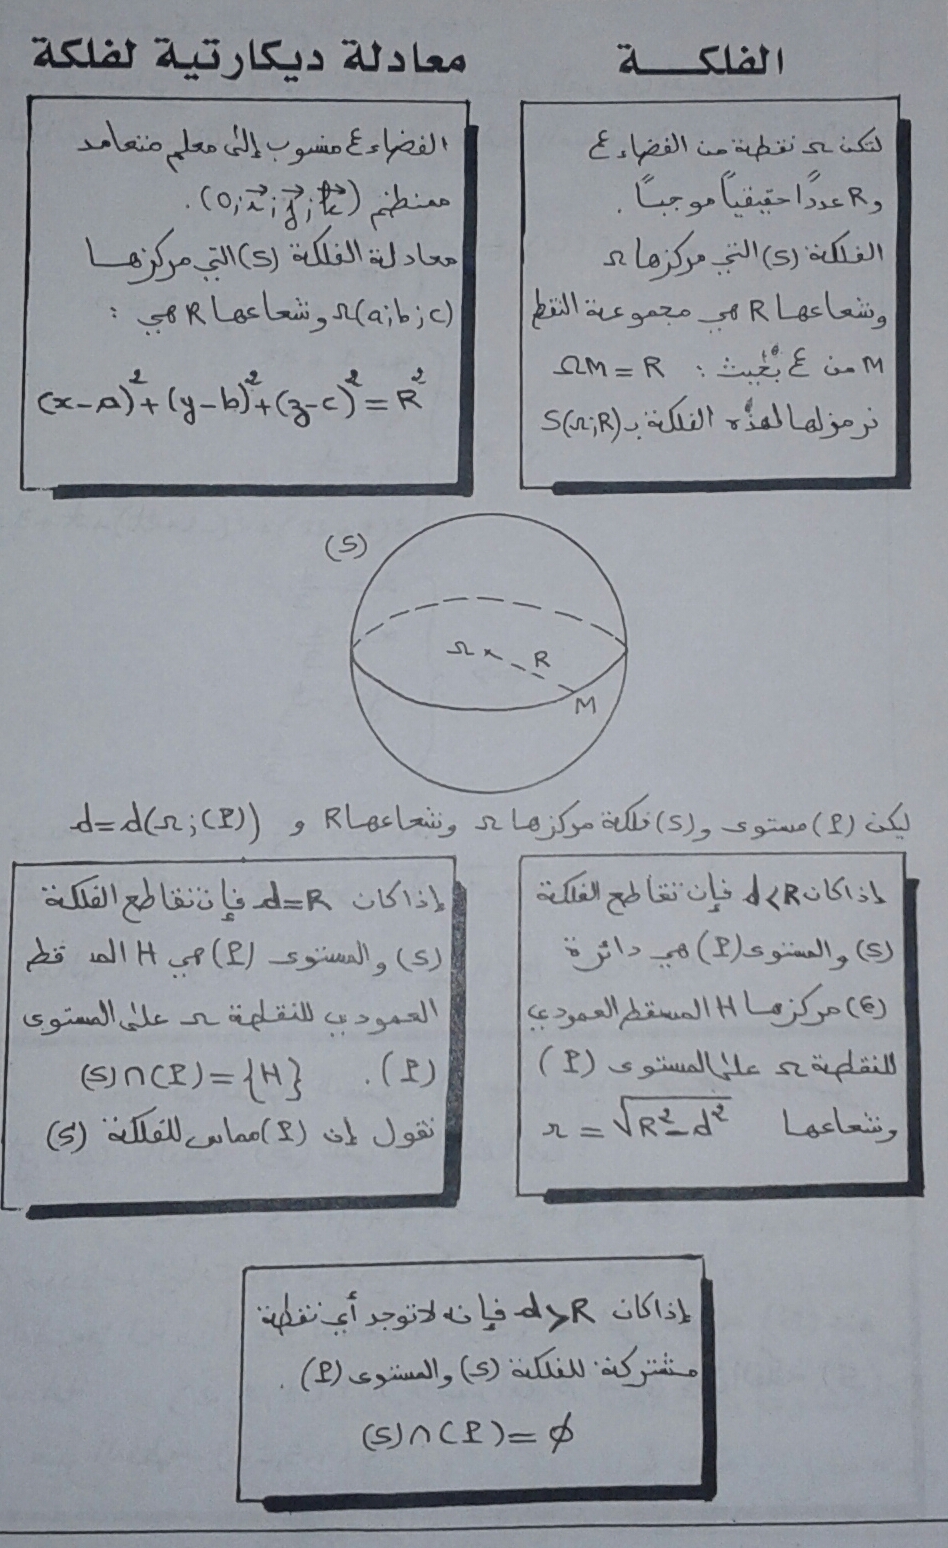 الفلكة
لتكن Ω نقطة من الفضاء ع
و R عدداً حقيقياً موجباً.
الفلكة (S) التي مركزها Ω
وشعاعها R هي مجموعة النقط
M من ع بحيث : ΩM = R
نرمز لها لهذه الفلكة بـ S(Ω;R)
معادلة ديكارتية لفلكة
الفضاء ع منسوب إلى معلم متعامد
ممنظم (O;i⃗;j⃗;k⃗).
معادلة الفلكة (S) التي مركزها
Ω(a;b;c) وشعاعها R هي :
(x-a)²+(y-b)²+(z-c)²=R²
(S)
Ω
R
M
ليكن (P) مستوى و (S) فلكة مركزها Ω وشعاعها R و d=d(Ω;(P))
إذا كان d<R فإن تقاطع الفلكة
(S) والمستوى (P) هي دائرة
(C) مركزها H المسقط العمودي
للنقطة Ω على المستوى (P)
وشعاعها r = √R²-d²
إذا كان d=R فإن تقاطع الفلكة
(S) والمستوى (P) هي H المسقط
العمودي للنقطة Ω على المستوى
(P). (S)∩(P)={H}
نقول إن (P) مماس للفلكة (S)
إذا كان d>R فإنه لا توجد أي نقطة
مشتركة للفلكة (S) والمستوى (P).
(S)∩(P)=∅